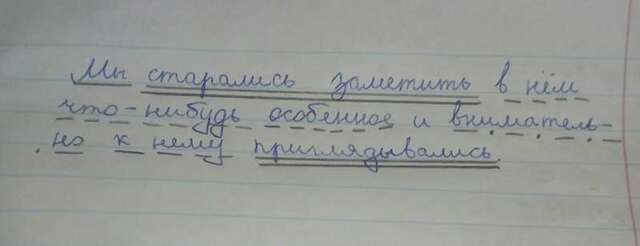 Мы старались заметить в нём
что-нибудь особенное и вниматель-
но к нему приглядывались.